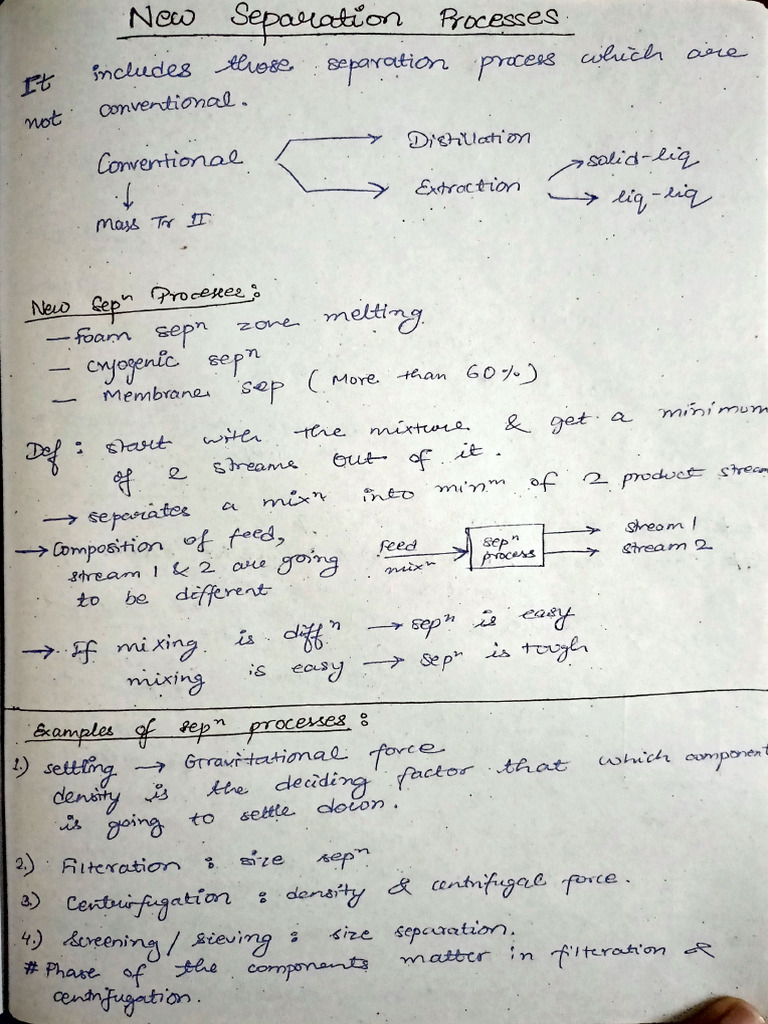 New Separation Processes
It includes those separation process which are
not conventional.
Conventional → Distillation
→ Extraction → solid-liq
→ liq-liq
↓
Mass Tr II
New Sepⁿ Processes:
— foam sepⁿ zone melting
— cryogenic sepⁿ
— Membrane sep (More than 60%)
Def: start with the mixture & get a minimum
of 2 streams out of it.
→ separates a mixⁿ into minᵐ of 2 product stream
→ Composition of feed,
stream 1 & 2 are going
to be different
feed
mixⁿ
sepⁿ
process
stream 1
stream 2
→ If mixing is diffⁿ → sepⁿ is easy
mixing is easy → sepⁿ is tough
Examples of sepⁿ processes:
1.) settling → Gravitational force
density is the deciding factor that which component
is going to settle down.
2.) Filteration : size sepⁿ
3.) Centurfugation : density & centrifugal force.
4.) Screening / sieving : size separation.
# Phase of the components matter in filteration &
centrifugation.